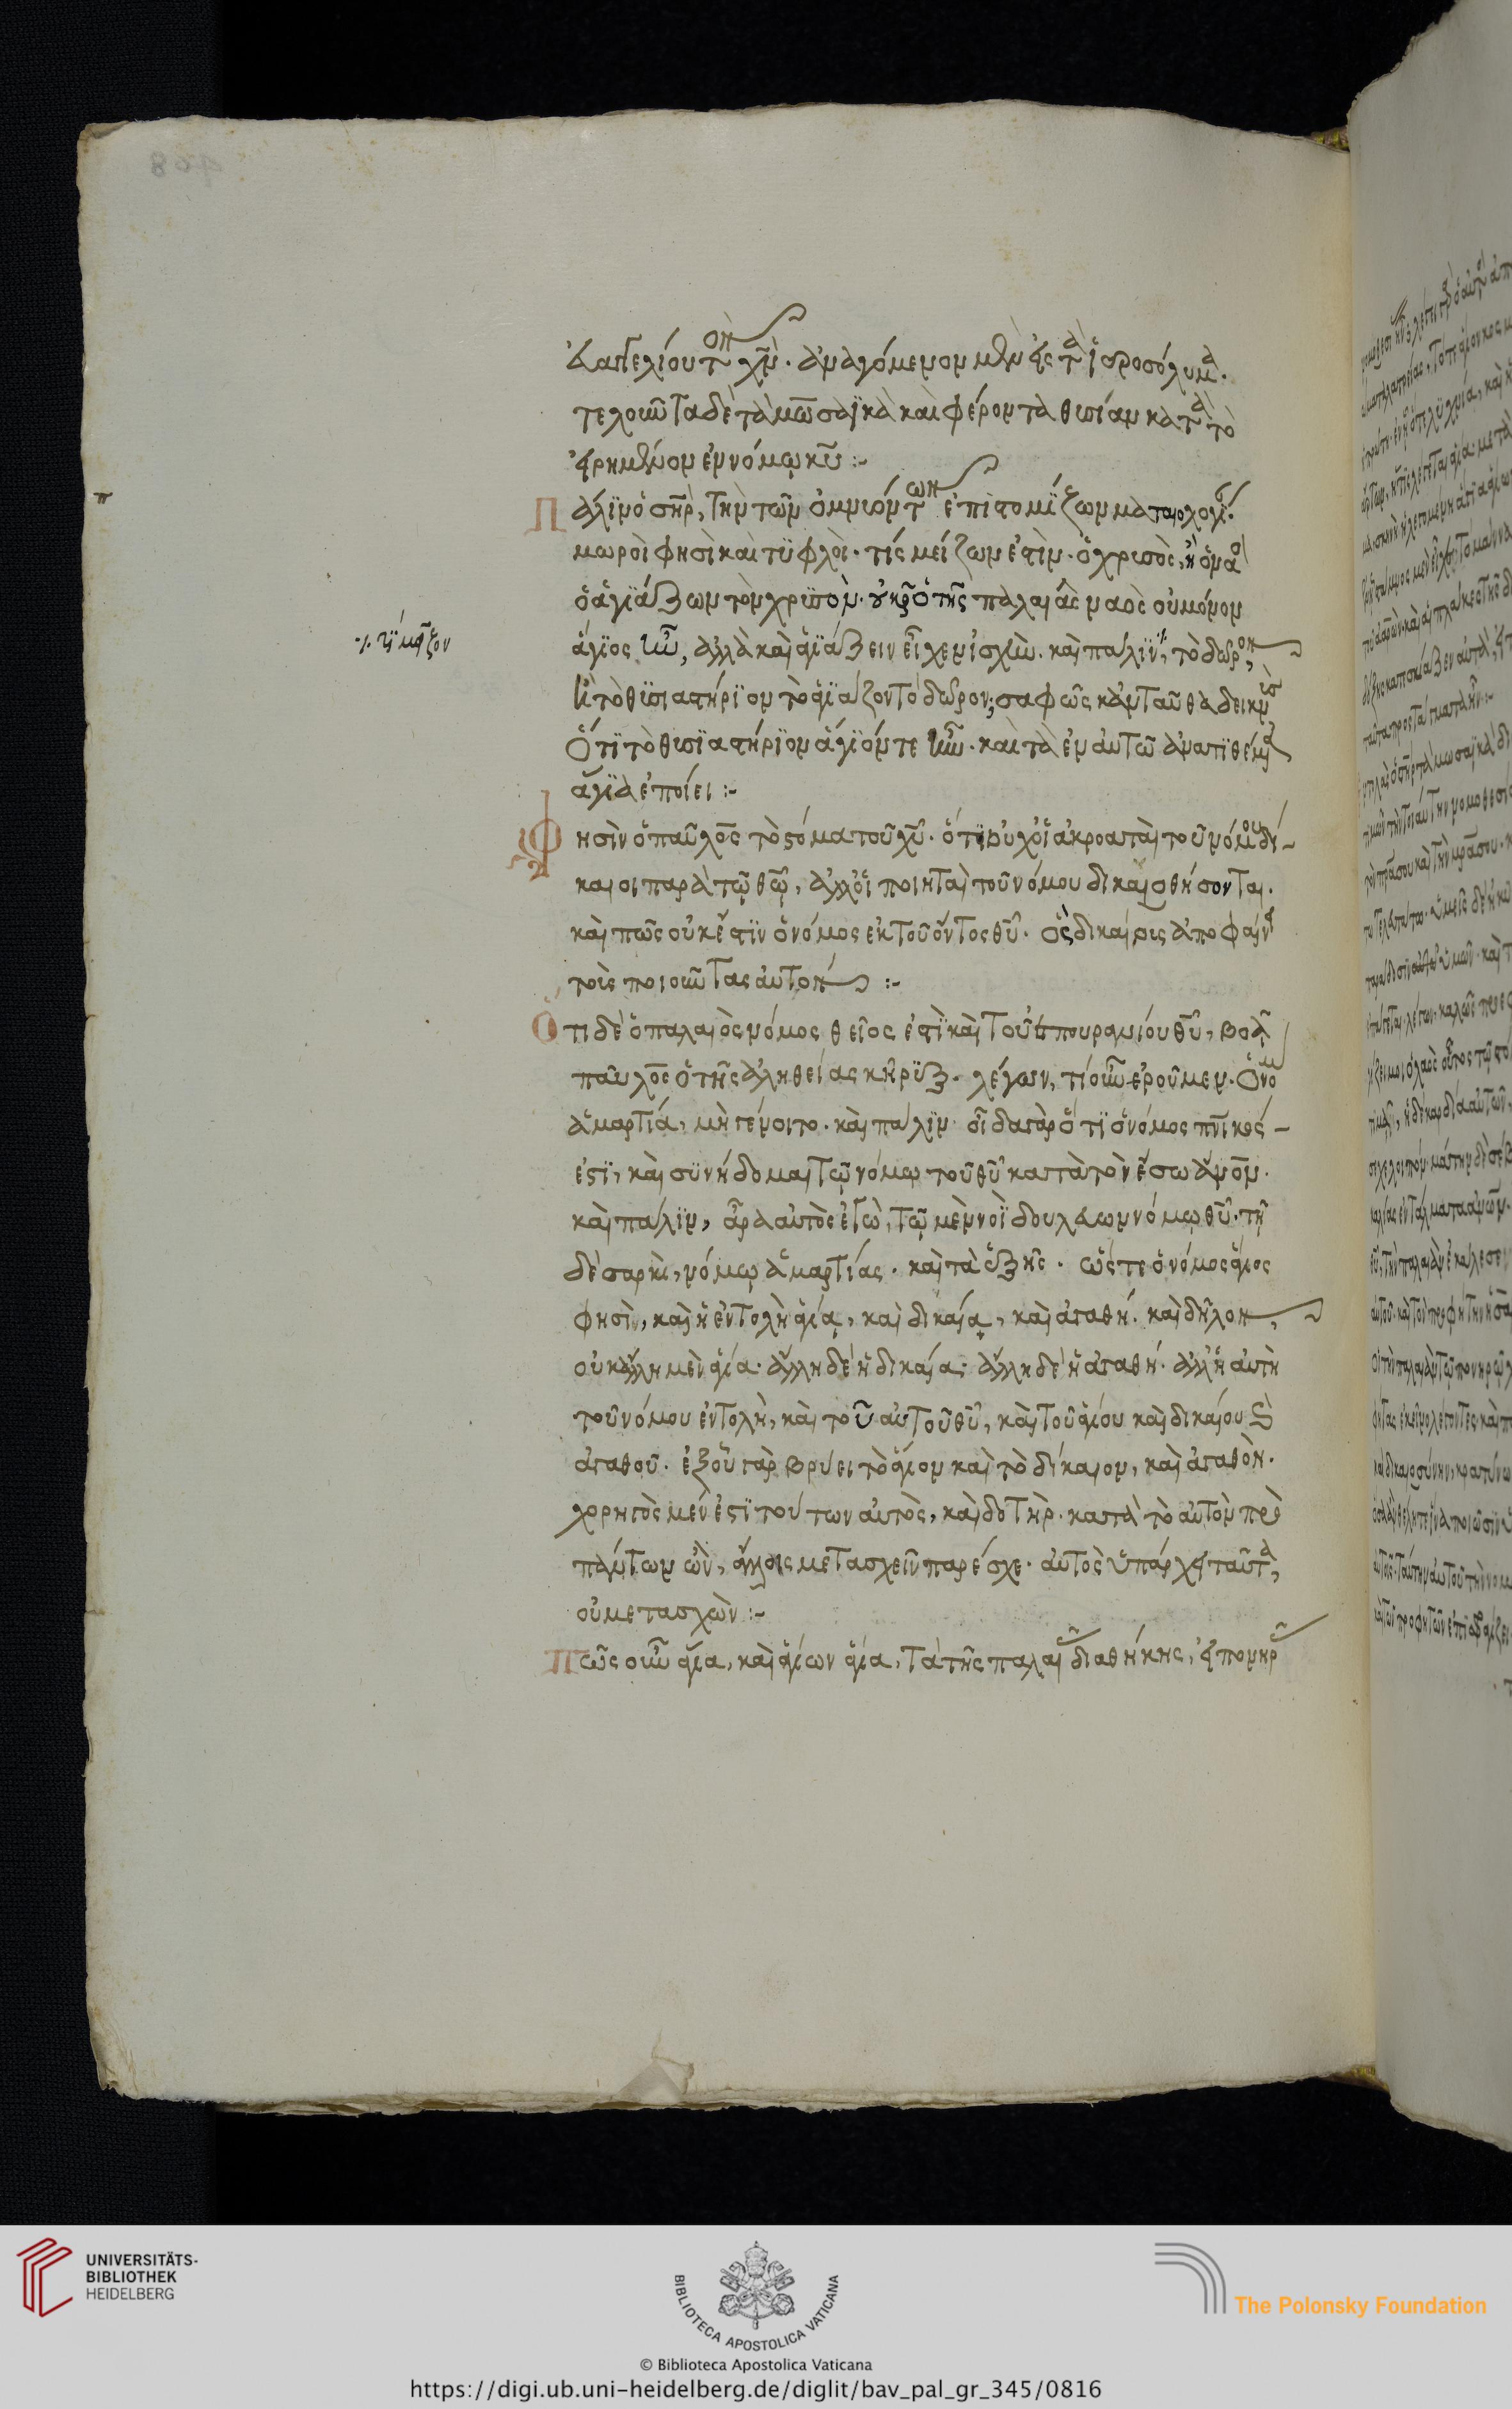 εὐαγγελίου τὸν χν. ἀναγόμενον μὲν εἰς τὰ ἱεροσόλυμα.
τελοῦντα δὲ τὰ μωσαϊκὰ καὶ φέροντα θυσίαν κατὰ τὸ
εἰρημένον ἐν νόμῳ κυ :-
Πάλιν ὁ σηρ, τὴν τῶν ὀμνυόντων ἐπιστομίζων ματαιολογί.
μωροὶ φησὶ καὶ τυφλοὶ. τίς μείζων ἐστὶν. ὁ χρυσὸς, ἢ ὁ ναὸ
ὁ ἁγιάζων τὸν χρυσὸν. οὐκοῦν ὁ τῆς παλαιᾶς ναὸς οὐ μόνον
ἅγιος ἦν, ἀλλὰ καὶ ἁγιάζειν εἶχεν ἰσχὺν. καὶ πάλιν, τὸ δῶρον,
ἢ τὸ θυσιαστήριον τὸ ἁγιάζον τὸ δῶρον; σαφῶς κἀνταῦθα δεικνὺς
ὅτι τὸ θυσιαστήριον ἅγιόν τε ἦν. καὶ τὰ ἐν αὐτῶ ἀνατιθέμενα
ἅγια ἐποίει :-
Φησὶν ὁ παῦλος τὸ στόμα τοῦ χυ. ὅτι οὐχ οἱ ἀκροαταὶ τοῦ νόμου δί-
καιοι παρὰ τῷ θῷ, ἀλλ' οἱ ποιηταὶ τοῦ νόμου δικαιωθήσονται.
καὶ πῶς οὐκ ἔστιν ὁ νόμος ἐκ τοῦ ὄντος θυ. ὃς δικαίους ἀποφαίνει
τοὺς ποιοῦντας αὐτὸν :-
Ὅτι δὲ ὁ παλαιὸς νόμος θεῖος ἐστὶ καὶ τοῦ ἐπουρανίου θυ, βοᾷ
παῦλος ὁ τῆς ἀληθείας κῆρυξ. λέγων, τί οὖν ἐροῦμεν. ὁ νόμος
ἁμαρτία, μὴ γένοιτο. καὶ πάλιν οἶδα γὰρ ὅτι ὁ νόμος πνικός
ἐστι, καὶ συνήδομαι τῷ νόμῳ τοῦ θυ κατὰ τὸν ἔσω ἄνον.
καὶ πάλιν, ἄρα αὐτὸς ἐγὼ, τῷ μὲν νοῒ δουλεύων νόμῳ θυ. τῇ
δὲ σαρκὶ, νόμῳ ἁμαρτίας. καὶ τὰ ἑξῆς. ὥστε ὁ νόμος ἅγιος
φησὶν, καὶ ἡ ἐντολὴ ἁγία, καὶ δικαία, καὶ ἀγαθή. καὶ δῆλον,
οὐκ ἄλλη μὲν ἁγία. ἄλλη δὲ ἡ δικαία. ἄλλη δὲ ἡ ἀγαθή. ἀλλ' ἡ αὐτὴ
τοῦ νόμου ἐντολὴ, καὶ τοῦ αὐτοῦ θυ, καὶ τοῦ ἁγίου καὶ δικαίου καὶ
ἀγαθοῦ. ἐξ οὗ γὰρ βρύει τὸ ἅγιον καὶ τὸ δίκαιον, καὶ ἀγαθὸν.
χορηγὸς μὲν ἐστι τούτων αὐτὸς, καὶ δοτὴρ. κατὰ τὸ αὐτὸν πρὸ
πάντων ὢν, ἄλλοις μετασχεῖν παρέσχε. αὐτὸς ὑπάρχει ταῦτα,
οὐ μετασχὼν :-
Πῶς οὖν ἅγια, καὶ ἁγίων ἅγια, τὰ τῆς παλαιᾶς διαθήκης, εἰ πονηρᾶς
UNIVERSITÄTS-
BIBLIOTHEK
HEIDELBERG
BIBLIOTECA APOSTOLICA VATICANA
The Polonsky Foundation
© Biblioteca Apostolica Vaticana
https://digi.ub.uni-heidelberg.de/diglit/bav_pal_gr_345/0816